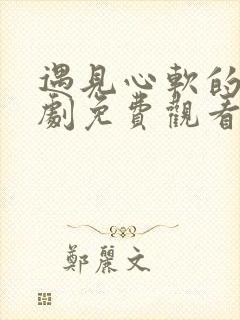 遇見心軟的
劇免費觀看
鄭麗文